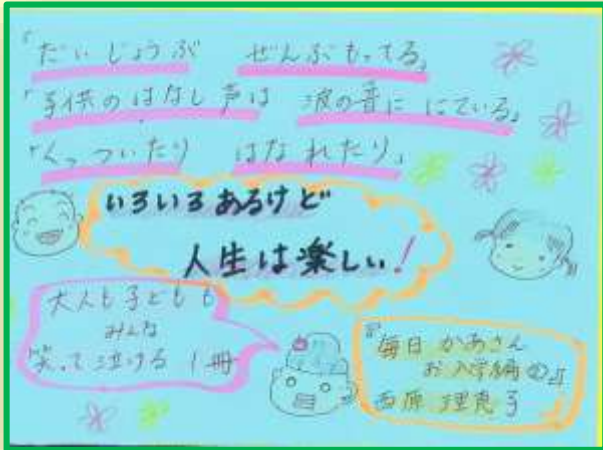 「だいじょうぶ ぜんぶもってる」
「子供のはなし声は 波の音に にている」
「くっついたり はなれたり」
いろいろあるけど
人生は楽しい!
大人も子どもも
みんな
笑って泣ける 1冊
『毎日かあさん
お入学編②』
西原理恵子